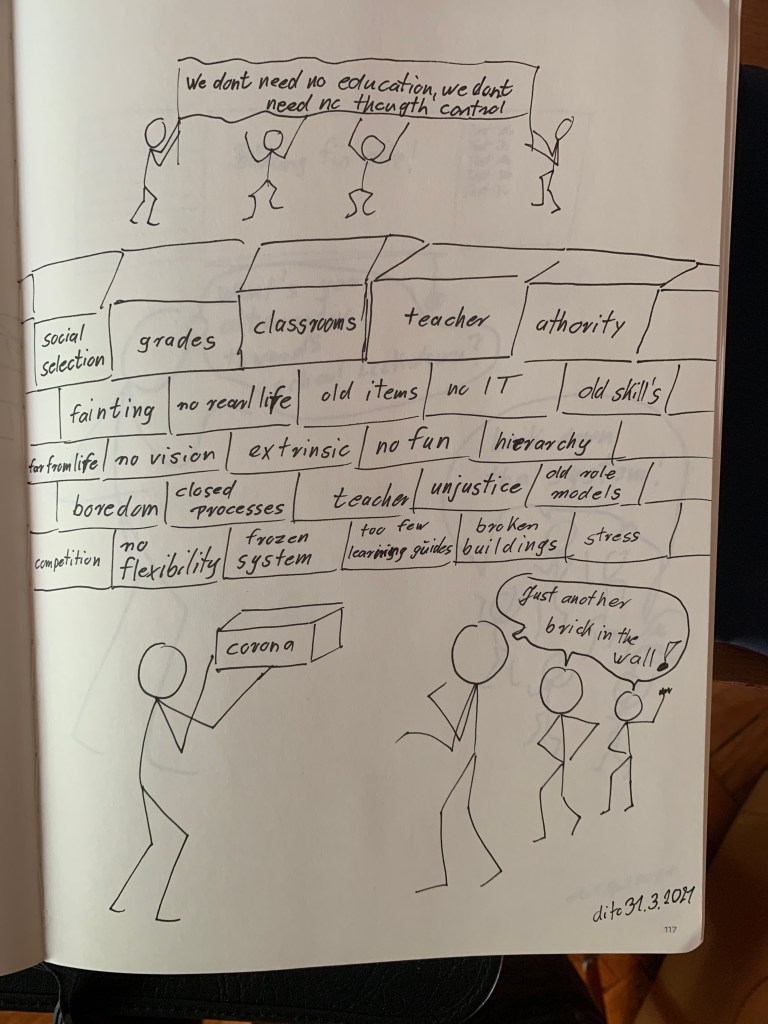 We dont need no education, we dont
need no thougth control
social
selection
grades
classrooms
teacher
athority
fainting
no rearl life
old items
no IT
old skill's
far from life
no vision
extrinsic
no fun
hierarchy
boredom
closed
processes
teacher
unjustice
old role
models
competition
no
flexibility
frozen
system
too few
learning guides
broken
buildings
stress
corona
Just another
brick in the
wall!
31.3.2021
117